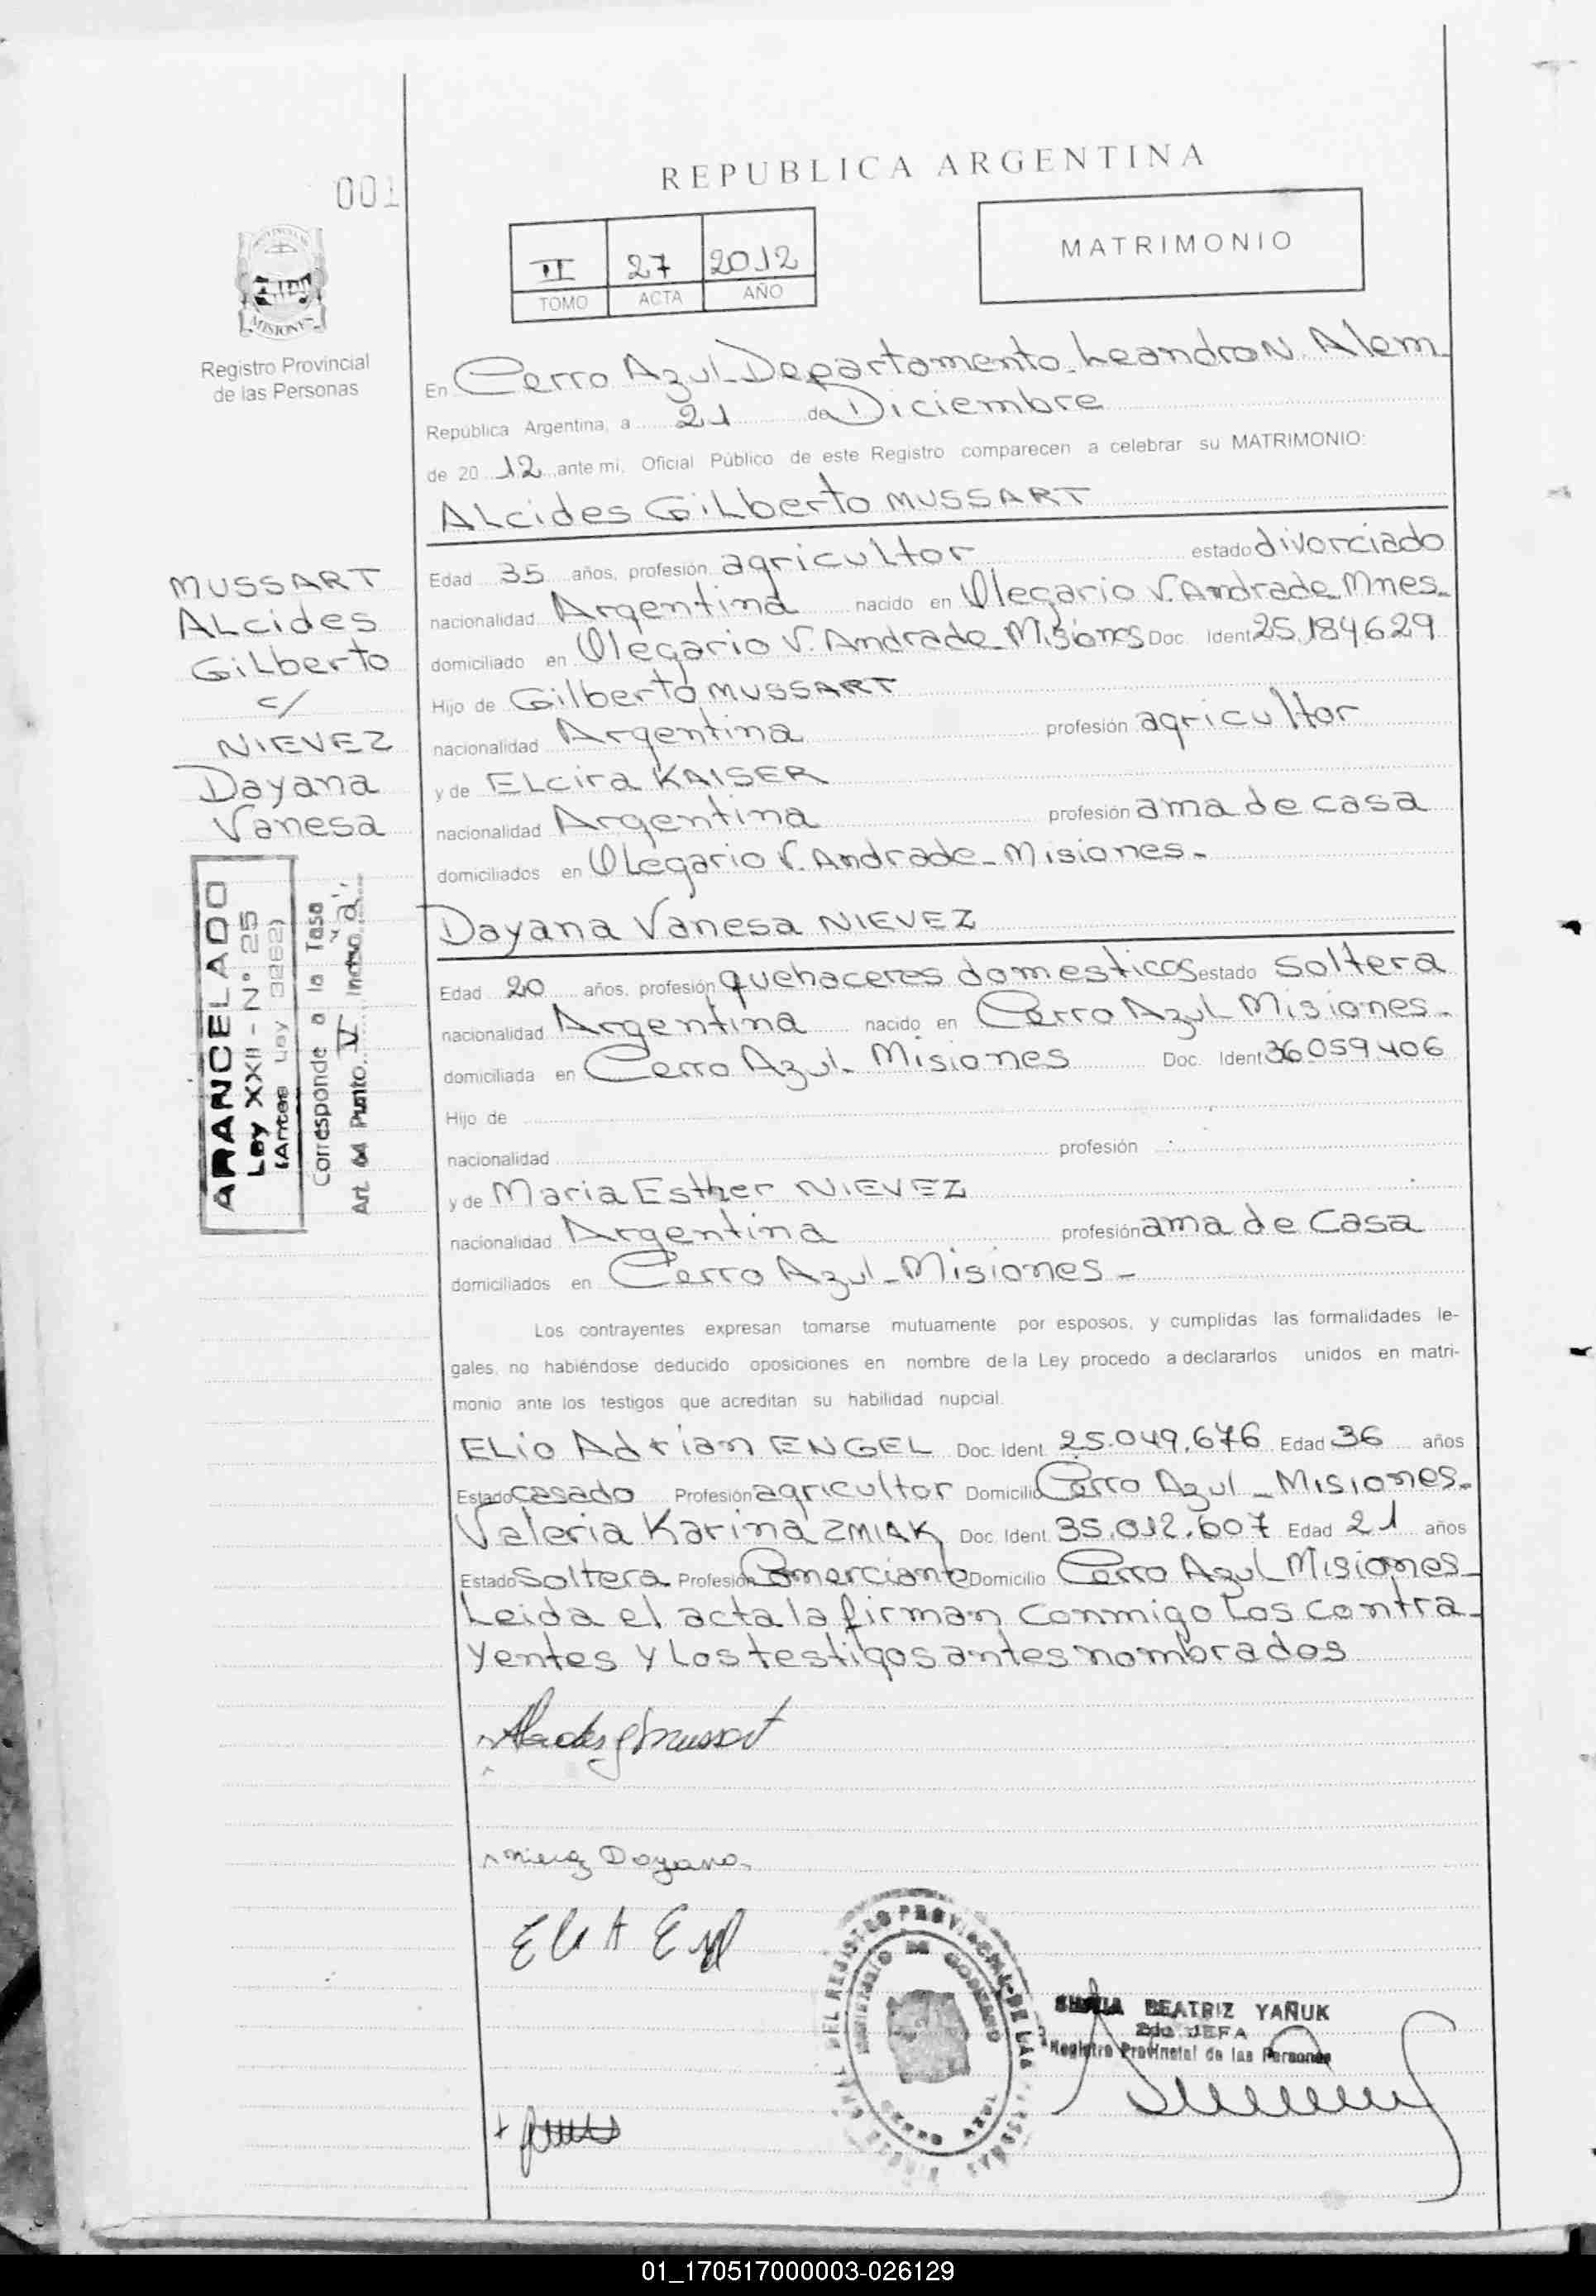 REPUBLICA ARGENTINA
001
MATRIMONIO
II 27 2012
TOMO ACTA AÑO
MISIONES
Registro Provincial
de las Personas
En Cerro Azul Departamento Leandro N. Alem
República Argentina, a 21 de Diciembre
de 20 12 ante mi, Oficial Público de este Registro comparecen a celebrar su MATRIMONIO:
ALcides GiLberto MUSSART
Edad 35 años, profesión agricultor estado divorciado
nacionalidad Argentina nacido en Olegario V. Andrade Mnes.
domiciliado en Olegario V. Andrade Misiones Doc. Ident 25.184.629
Hijo de Gilberto MUSSART
nacionalidad Argentina profesión agricultor
y de ELcira KAISER
nacionalidad Argentina profesión ama de casa
domiciliados en OLegario V. Andrade - Misiones -
MUSSART
ALcides
GiLberto
c/
NIEVEZ
Dayana
Vanesa
ARANCELADO
Ley XXII - N° 25
(Antes Ley 3262)
Corresponde a la Tasa
Art. 64 Punto V Inciso "a"
Dayana Vanesa NIEVEZ
Edad 20 años, profesión quehaceres domesticos estado soltera
nacionalidad Argentina nacido en Cerro Azul Misiones -
domiciliada en Cerro Azul - Misiones Doc. Ident 36.059.406
Hijo de
nacionalidad profesión
y de Maria Esther NIEVEZ
nacionalidad Argentina profesión ama de Casa
domiciliados en Cerro Azul - Misiones -
Los contrayentes expresan tomarse mutuamente por esposos, y cumplidas las formalidades le-
gales, no habiéndose deducido oposiciones en nombre de la Ley procedo a declararlos unidos en matri-
monio ante los testigos que acreditan su habilidad nupcial.
ELio Adrian ENGEL Doc. Ident. 25.049.676 Edad 36 años
Estado casado Profesión agricultor Domicilio Cerro Azul - Misiones -
Valeria Karina ZMIAK Doc. Ident. 35.012.607 Edad 21 años
Estado Soltera Profesión Comerciante Domicilio Cerro Azul Misiones -
Leida el acta la firman conmigo Los contra-
yentes y Los testigos antes nombrados
Nievez Dayana
SILVIA BEATRIZ YAÑUK
2da JEFA
Registro Provincial de las Personas
MINISTERIO DE GOBIERNO
01_170517000003-026129